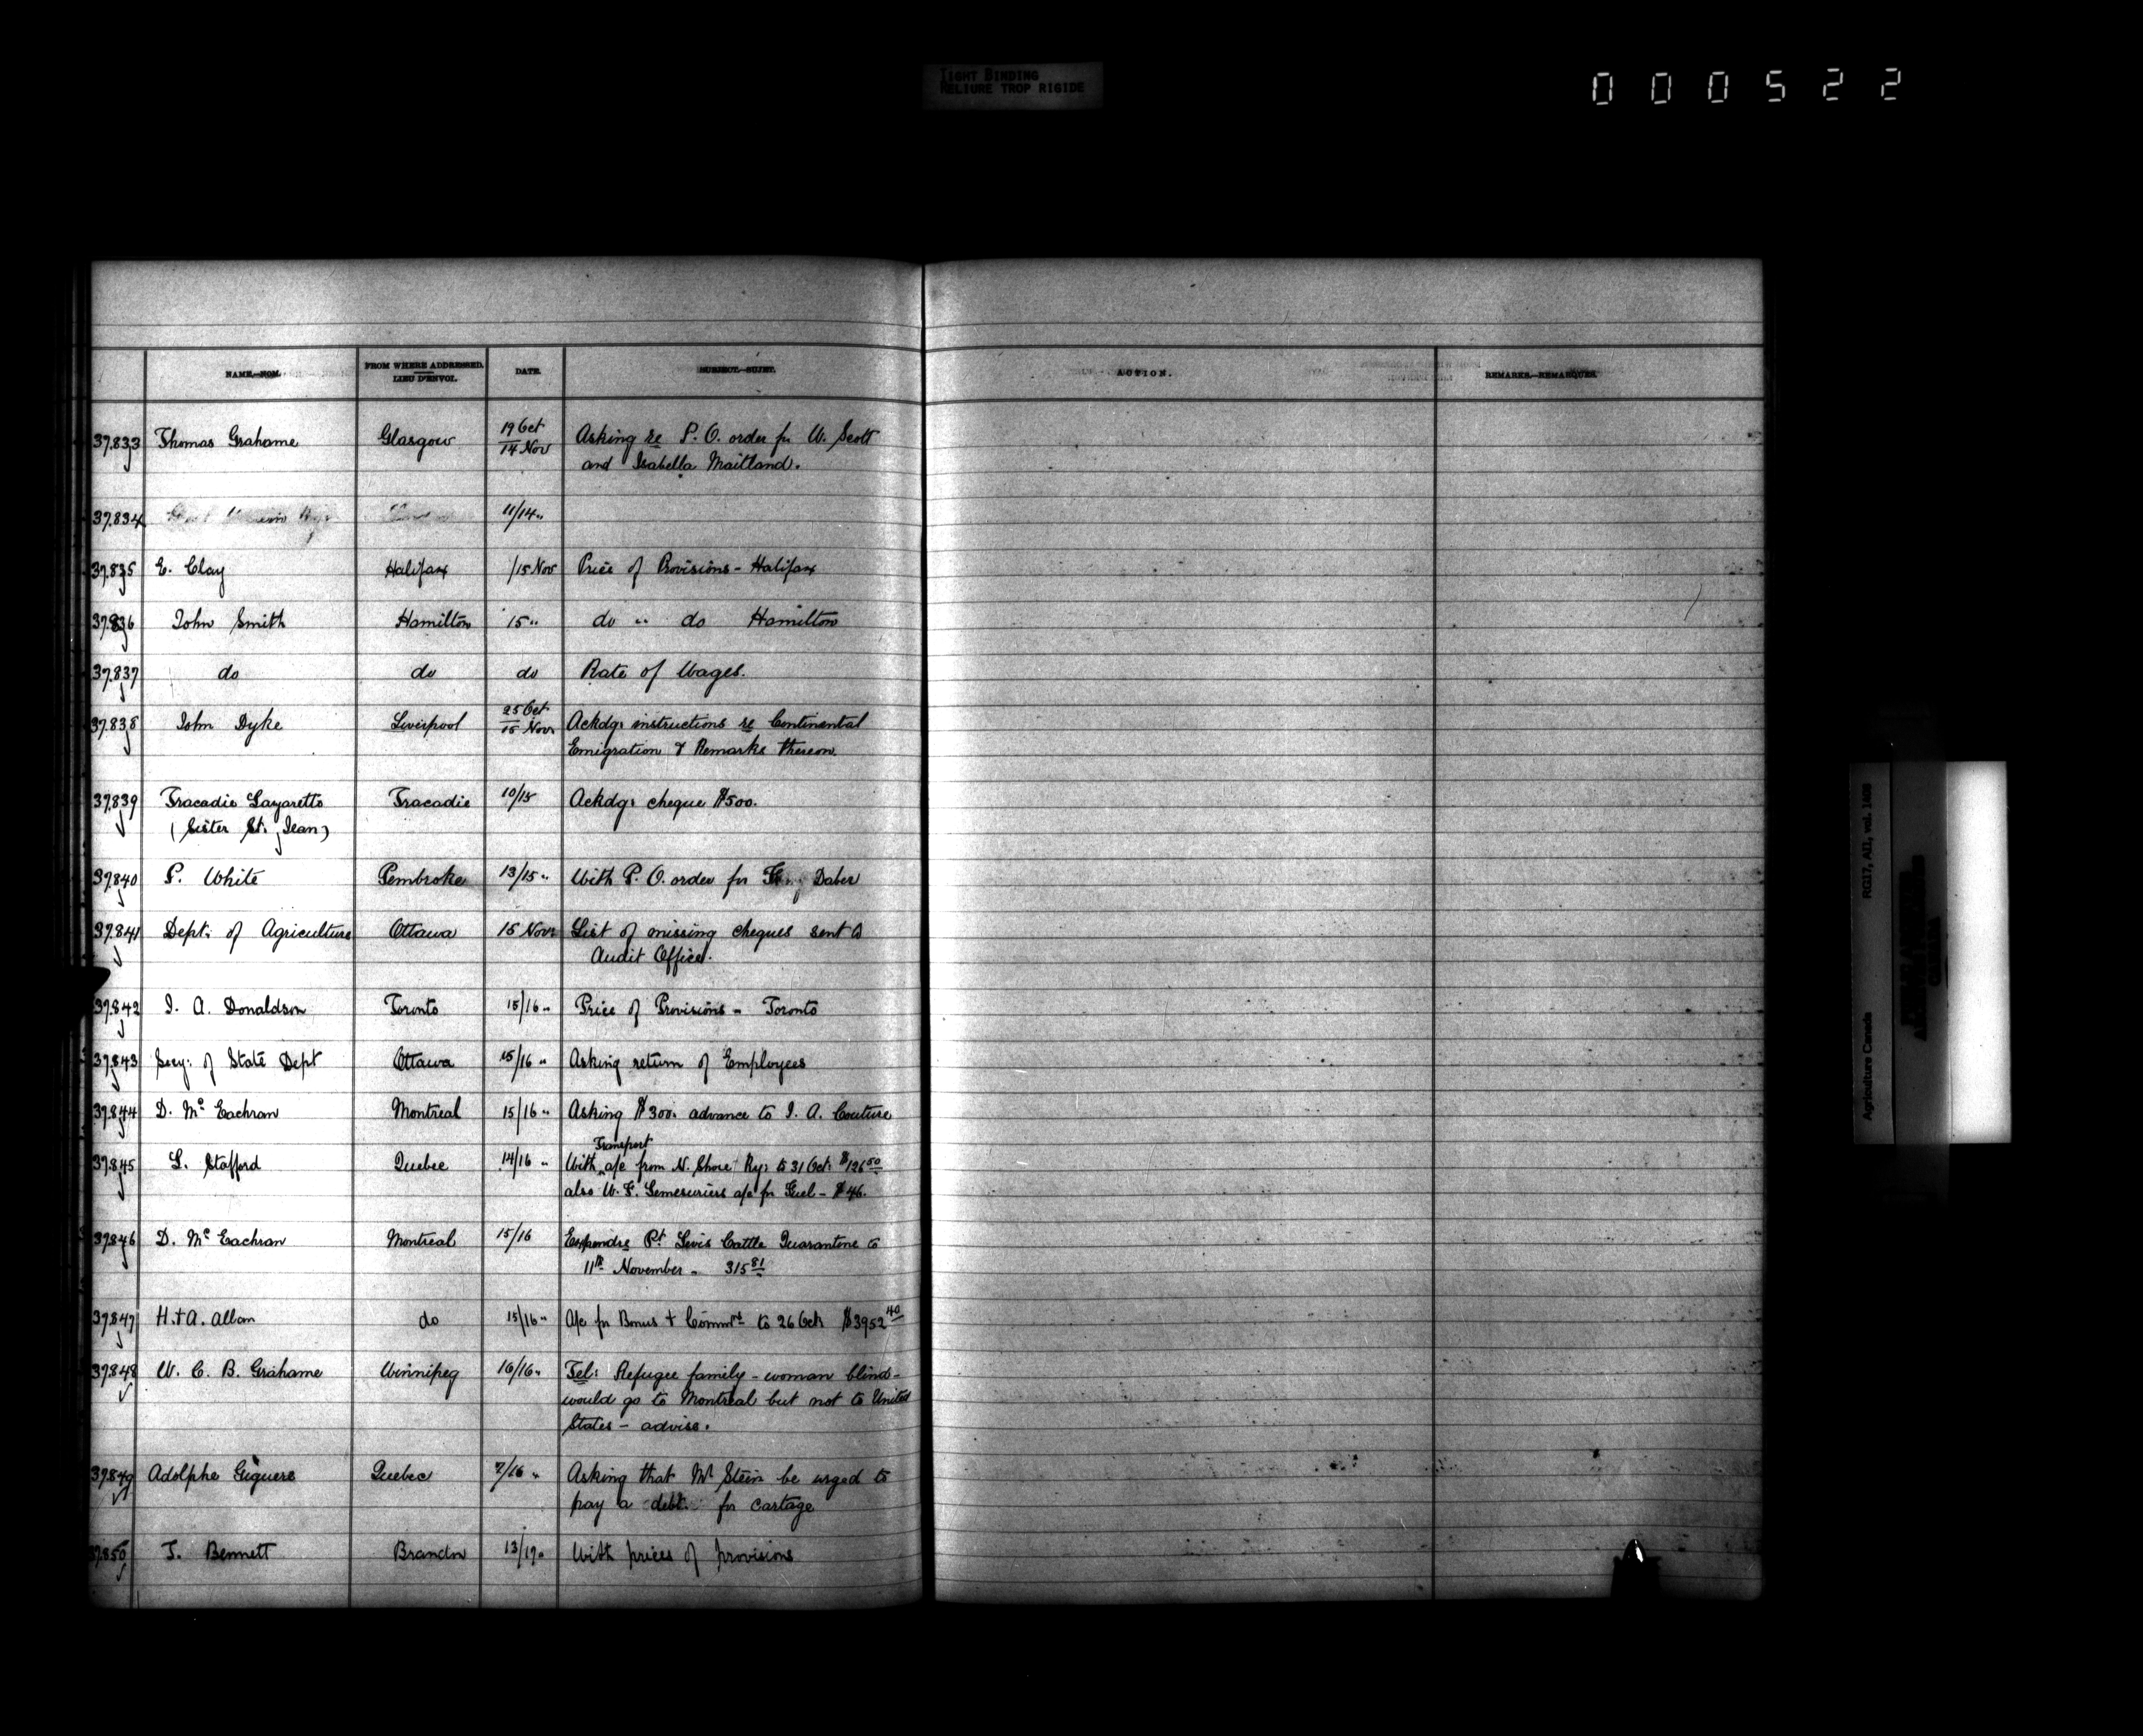 TIGHT BINDING
RELIURE TROP RIGIDE
000522
NAME.—NOM. FROM WHERE ADDRESSED. LIEU D'ENVOI. DATE. SUBJECT.—SUJET. ACTION. REMARKS.—REMARQUES.
37.833 Thomas Grahame Glasgow 19 Oct / 14 Nov Asking re P. O. order for W. Scott
and Isabella Maitland.
37.834 11/14 "
37.835 E. Clay Halifax /15 Nov Price of Provisions - Halifax
37.836 John Smith Hamilton 15 " do " do Hamilton
37.837 do do do Rate of Wages.
37.838 John Dyke Liverpool 25 Oct / 15 Nov. Ackdg: instructions re Continental
Emigration & Remarks thereon.
37.839 Tracadie Lazaretto Tracadie 10/15 Ackdg: cheque $500.
(Sister St. Jean)
37.840 P. White Pembroke 13/15 " With P. O. order for Daber
37.841 Dept: of Agriculture Ottawa 15 Nov: List of missing cheques sent to
Audit Office.
37.842 J. A. Donaldson Toronto 15/16 " Price of Provisions - Toronto
37.843 Secy: of State Dept Ottawa 15/16 " Asking return of Employees
37.844 D. McEachran Montreal 15/16 " Asking $300. advance to J. A. Couture
Transport
37.845 L. Stafford Quebec 14/16 " With a/c from N. Shore Ry: to 31 Oct: $126 50
also W. F. Lemesuriers a/c for Fuel - $46.
37.846 D. McEachran Montreal 15/16 Expendre Pt Levis Cattle Quarantine to
11th November - 315 81
37.847 H. + A. Allan do 15/16 " A/c for Bonus + Commns to 26 Oct: $3952 40
37.848 W. C. B. Grahame Winnipeg 16/16 " Tel: Refugee family - woman blind -
would go to Montreal but not to United
States - advise.
37.849 Adolphe Giguere Quebec 7/16 " Asking that Mr Stein be urged to
pay a debt for cartage
37.850 T. Bennett Brandon 13/17 " With prices of provisions
Agriculture Canada RG17, AII, vol. 1488